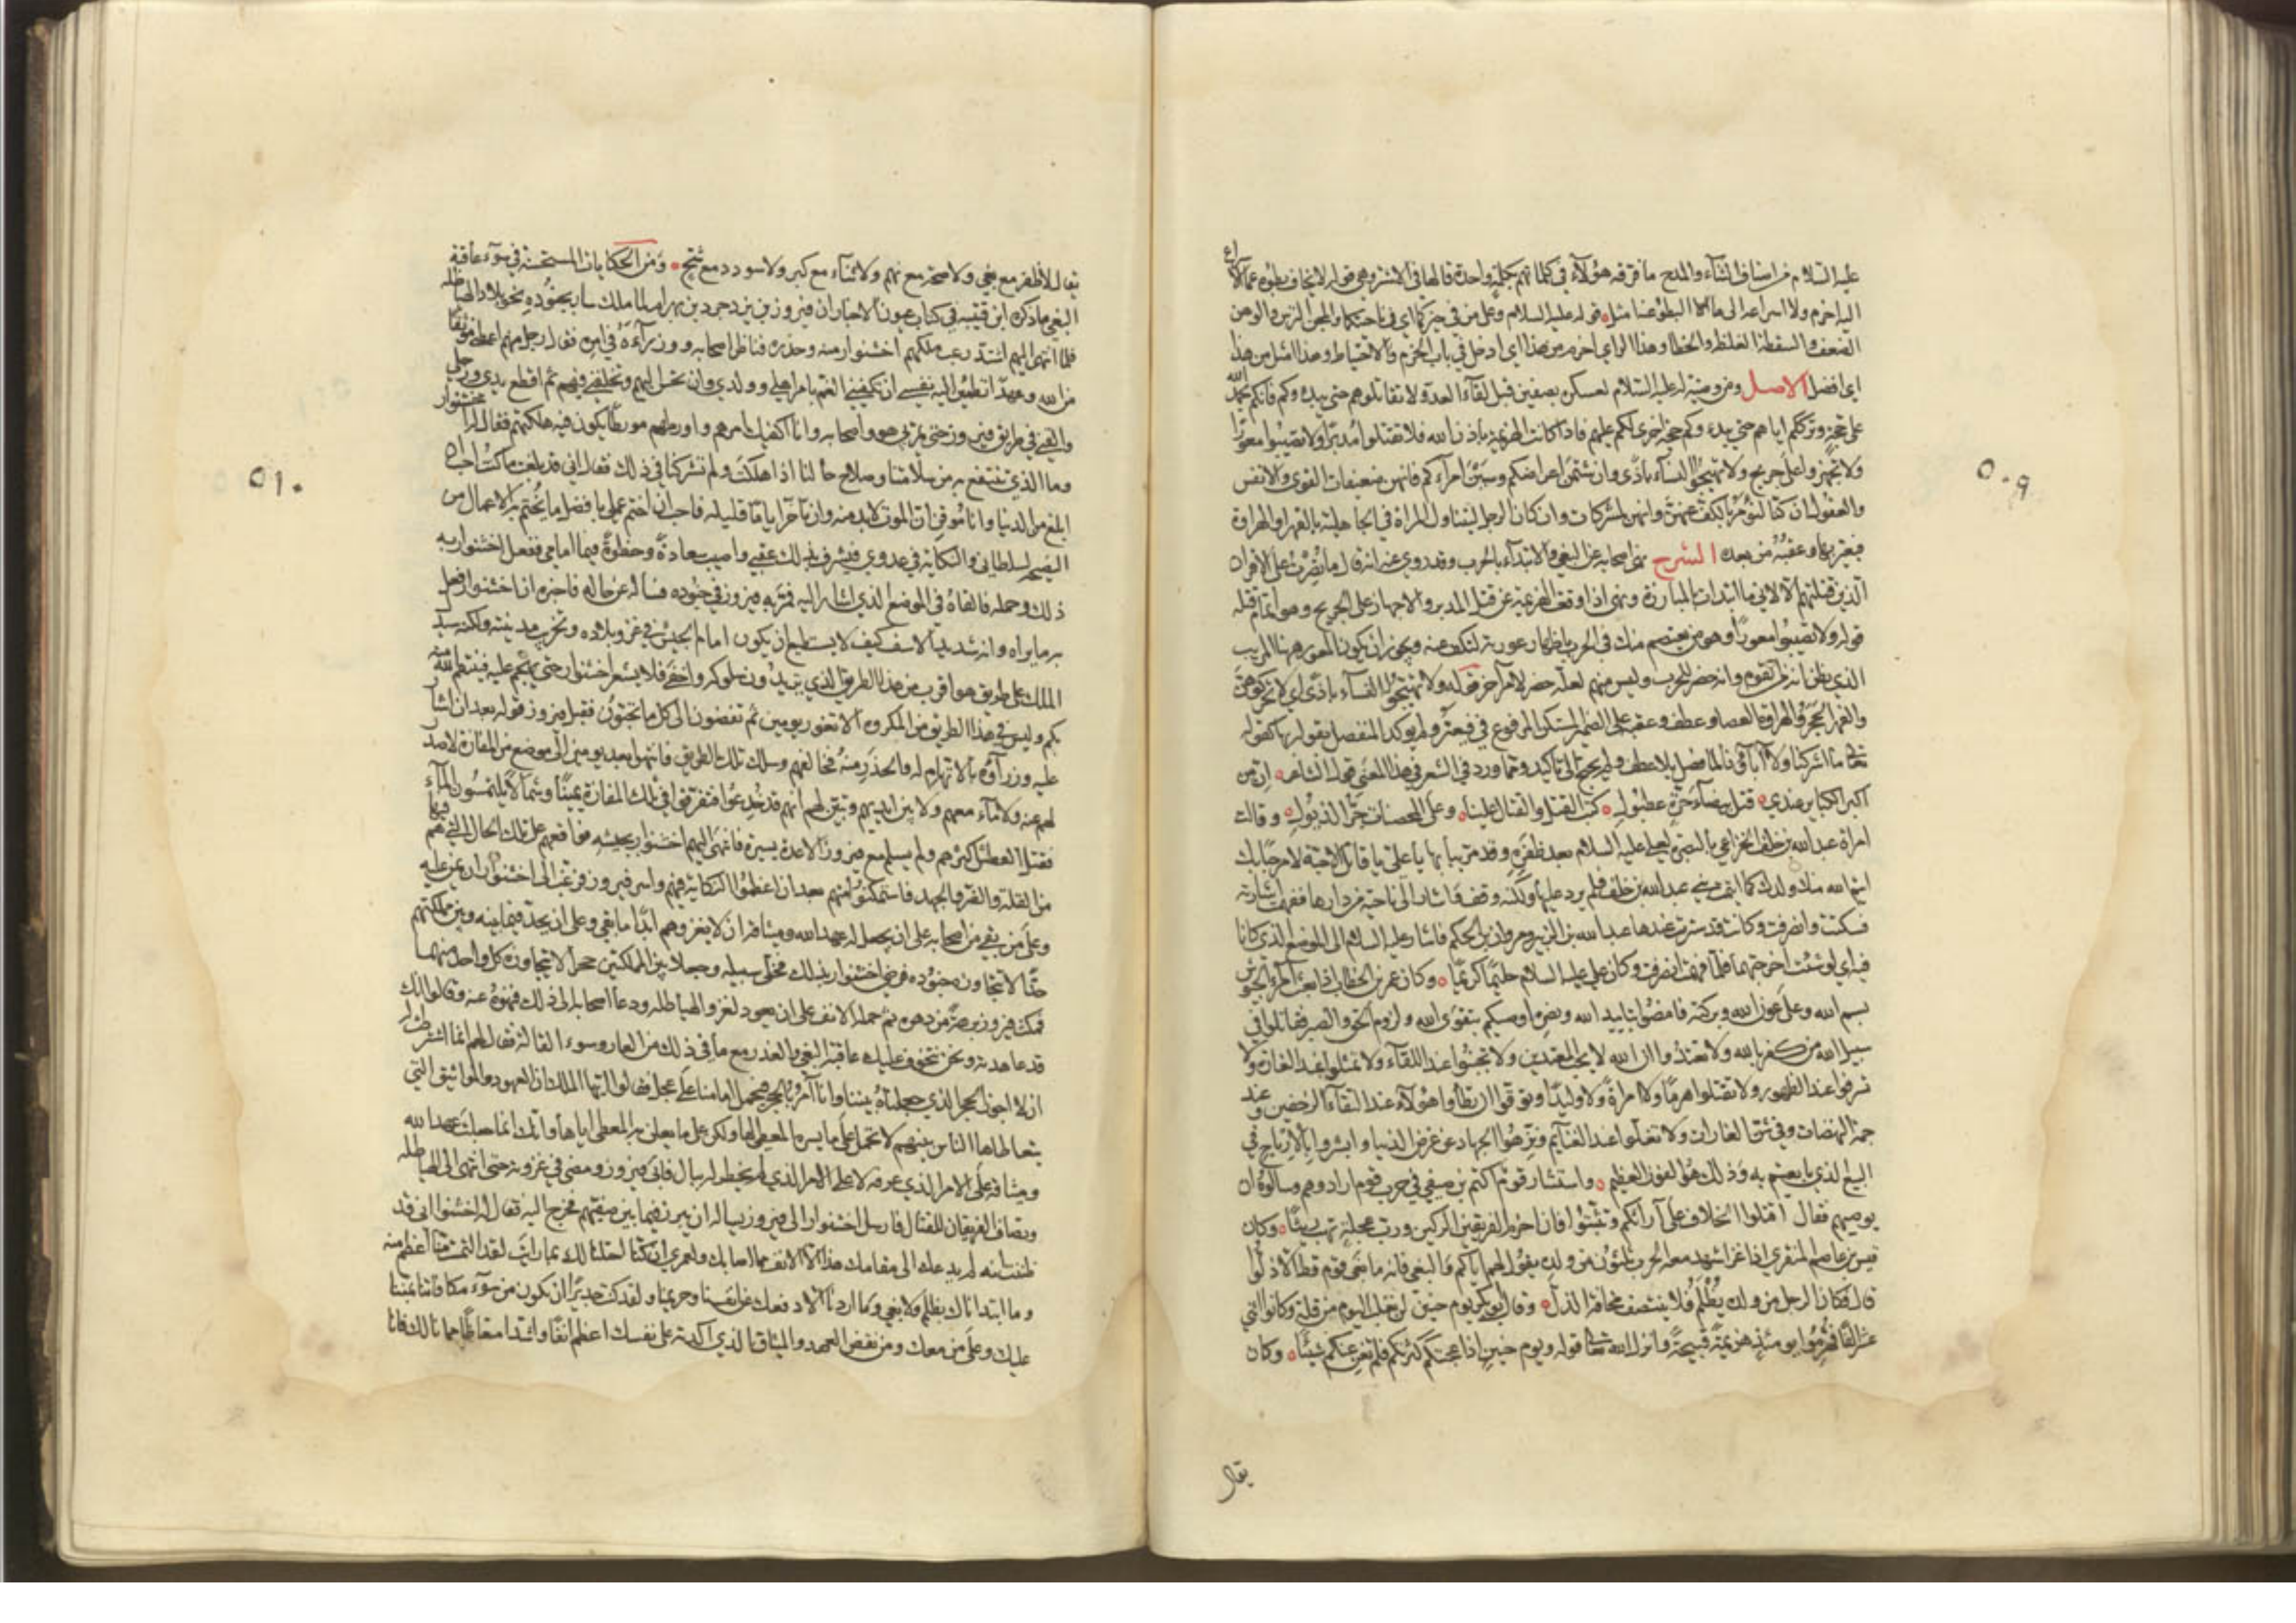 عليه السلام من اصناف الثناء والمدح ما فرقه هؤلاء في كلماتهم بكلمة واحدة قالها في الاشتر وهي قوله لا يخاف بطؤه عما الاسراع
اليه احزم ولا اسراعه الى ما البطؤ عنه امثل قوله عليه السلام وعلى من في حيزكما اي في ناحيتكما والمجن الترس والوهن
الضعف والسقطة الغلطة والخطا وهذا الراي احزم من هذا اي ادخل في باب الحزم والاحتياط وهذا امثل من هذا
اي افضل الاصل ومن وصية له عليه السلام لعسكره بصفين قبل لقاء العدو لا تقاتلوهم حتى يبدؤكم فانكم بحمد الله
على حجة وترككم اياهم حتى يبدؤكم حجة اخرى لكم عليهم فاذا كانت الهزيمة باذن الله فلا تقتلوا مدبرا ولا تصيبوا معورا
ولا تجهزوا على جريح ولا تهيجوا النساء باذى وان شتمن اعراضكم وسببن امراءكم فانهن ضعيفات القوى والانفس
والعقول ان كنا لنؤمر بالكف عنهن وانهن لمشركات وان كان الرجل ليتناول المراة في الجاهلية بالفهر او الهراوة
فيعير بها وعقبه من بعده الشرح نهى اصحابه عن البغي والابتداء بالحرب وقد روي عنه انه قال ما نصرت على الاقران
الذين قتلتهم الا لاني ما ابتدات بالمبارزة ونهى اذا وقعت الهزيمة عن قتل المدبر والاجهاز على الجريح وهو اتمام قتله
قوله ولا تصيبوا معورا وهو من يعتصم منك في الحرب باظهار عورته لتكف عنه ويجوز ان يكون المعور ههنا المريب
الذي يظن انه من القوم وانه حضر للحرب وليس منهم لعله حضر لامر آخر قوله ولا تهيجوا النساء باذى اي لا تحركوهن
والفهر الحجر والهراوة العصا وعطف وعقبه على الضمير المستكن المرفوع في فيعير ولم يؤكد للفصل بقوله بها كقوله
تعالى ما اشركنا ولا آباؤنا لما فصل بلا عطف ولم يحتج الى تاكيد ومما ورد في الشعر في هذا المعنى قول الشاعر ان من
اكبر الكبائر عندي قتل بيضاء حرة عطبول كتب القتل والقتال علينا وعلى المحصنات جر الذيول وقالت
امراة عبد الله بن خلف الخزاعي بالبصرة لعلي عليه السلام بعد ظفره وقد مر ببابها يا علي يا قاتل الاحبة لا مرحبا بك
ايتم الله منك ولدك كما ايتمت بني عبد الله بن خلف فلم يرد عليها ولكنه وقف واشار الى ناحية من دارها ففهمت اشارته
فسكتت وانصرفت وكانت قد سترت عندها عبد الله بن الزبير ومروان بن الحكم فاشار عليه السلام الى الموضع الذي كانا
فيه اي لو شئت اخرجتهما فلما فهمت انصرفت وكان علي عليه السلام حليما كريما وكان عمر بن الخطاب اذا بعث امراء الجيوش
بسم الله وعلى عون الله وبركته فامضوا بتاييد الله ونصره اوصيكم بتقوى الله ولزوم الحق والصبر فقاتلوا في
سبيل الله من كفر بالله ولا تعتدوا ان الله لا يحب المعتدين ولا تجبنوا عند اللقاء ولا تمثلوا عند الغارة ولا
تسرفوا عند الظهور ولا تقتلوا هرما ولا امراة ولا وليدا وتوقوا ان تطأوا هؤلاء عند التقاء الزحفين وعند
حمة النهضات وفي شن الغارات ولا تغلوا عند الغنائم ونزهوا الجهاد عن غرض الدنيا وابشروا بالارباح في
البيع الذي بايعتم به وذلك هو الفوز العظيم واستشار قوم اكثم بن صيفي في حرب قوم ارادوهم وسالوه ان
يوصيهم فقال اقلوا الخلاف على امرائكم وتثبتوا فان احزم الفريقين الركين ورب عجلة تهب ريثا وكان
قيس بن عاصم المنقري اذا غزا شهد معه الحرب ثلثون من ولده يقول لهم اياكم والبغي فانه ما بغى قوم قط الا ذلوا
قال فكان الرجل من ولده يظلم فلا ينتصف مخافة الذل وقال ابو بكر يوم حنين لن نغلب اليوم من قلة وكانوا اثني
عشر الفا فهزموا يومئذ هزيمة قبيحة وانزل الله تعالى قوله ويوم حنين اذ اعجبتكم كثرتكم فلم تغن عنكم شيئا وكان
يقال
٥٠٩
يقال لا ظفر مع بغي ولا صحة مع نهم ولا ثناء مع كبر ولا سودد مع شح ومن الحكايات المستحسنة في سوء عاقبة
البغي ما ذكره ابن قتيبة في كتاب عيون الاخبار ان فيروز بن يزدجرد بن بهرام لما ملك سار بجنوده نحو بلاد الهياطلة
فلما انتهى اليهم اشتد رعب ملكهم اخشنوار منه وحذره فناظر اصحابه ووزراءه في امره فقال رجل منهم اعطني موثقا
من الله وعهدا تطمئن اليه نفسي ان تكفيني الغم بامر اهلي وولدي وان تحسن اليهم وتخلفني فيهم ثم اقطع يدي ورجلي
والقني في طريق فيروز حتى يمر بي هو واصحابه وانا اكفيك امرهم واورطهم مورطا يكون فيه هلكتهم فقال له اخشنوار
وما الذي تنتفع به من سلامتنا وصلاح حالنا اذا هلكت ولم تشركنا في ذلك فقال اني قد بلغت ما كنت احب ان
ابلغ من الدنيا وانا موقن ان الموت لا بد منه وان تاخر اياما قليلة فاحب ان اختم عملي بافضل ما يختم به الاعمال من
النصيحة لسلطاني والنكاية في عدوي فيشرف بذلك عقبي واصيب سعادة وحظوة فيما امامي ففعل اخشنوار به
ذلك وحمله فالقاه في الموضع الذي اشار اليه فمر به فيروز في جنوده فساله عن حاله فاخبره ان اخشنوار فعل
به ما يراه وانه شديد الاسف كيف لا يستطيع ان يكون امام الجيش في غزو بلاده وتخريب مدينته ولكنه سيدل
الملك على طريق هو اقرب من هذا الطريق الذي يريدون سلوكه واخفى فلا يشعر اخشنوار حتى يهجم عليه فينتقم الله منه
بكم وليس في هذا الطريق من المكروه الا تغور يومين ثم تفضون الى كل ما تحبون فقبل فيروز قوله بعد ان اشار
عليه وزراؤه بالاتهام له والحذر منه فخالفهم وسلك تلك الطريق فانتهوا بعد يومين الى موضع من المفازة لا صدر
لهم عنه ولا ماء معهم ولا بين ايديهم وتبين لهم انهم قد خدعوا فتفرقوا في تلك المفازة يمينا وشمالا يلتمسون الماء
فقتل العطش اكثرهم ولم يسلم مع فيروز الا عدة يسيرة فانتهى اليهم اخشنوار بجيشه فواقعهم على تلك الحال التي هم فيها
من القلة والضر والجهد فاستمكنوا منهم بعد ان اعظموا النكاية فيهم واسر فيروز فرغب الى اخشنوار ان يمن عليه
وعلى من بقي من اصحابه على ان يجعل له عهد الله وميثاقه ان لا يغزوهم ابدا ما بقي وعلى ان يحد فيما بينه وبين مملكتهم
حدا لا يتجاوزه جنوده فرضي اخشنوار بذلك فخلى سبيله وجعلا بين المملكتين حجرا لا يتجاوزه كل واحد منهما
فمكث فيروز برهة من دهره ثم حمله الانف على ان يعود لغزو الهياطلة ودعا اصحابه الى ذلك فنهوه عنه وقالوا انك
قد عاهدته ونحن نتخوف عليك عاقبة البغي والغدر مع ما في ذلك من العار وسوء القالة فقال لهم انما اشترطت له
ان لا اجوز الحجر الذي جعلناه بيننا وانا آمر بالحجر فيحمل امامنا على عجل فقالوا ايها الملك ان العهود والمواثيق التي
يتعاطاها الناس بينهم لا تحمل على ما يسره المعطي لها ولكن على ما يعلن به المعطى اياها وانك انما جعلت عهد الله
وميثاقه على الامر الذي عرفه لا على الامر الذي لم يخطر له ببال فابى فيروز ومضى في غزوته حتى انتهى الى الهياطلة
وتصاف الفريقان للقتال فارسل اخشنوار الى فيروز يساله ان يبرز فيما بين صفيهم فخرج اليه فقال له اخشنوار اني قد
ظننت انه لم يدعك الى مقامك هذا الا الانف مما اصابك ولعمري ان كنا احتلنا لك بما رايت لقد التمست منا اعظم منه
وما ابتداناك بظلم ولا بغي وما اردنا الا دفعك عن انفسنا وحريمنا ولقد كنت جديرا ان تكون من سوء مكافاتنا بمننا
عليك وعلى من معك ومن نقض العهد والميثاق الذي اكدته على نفسك اعظم انفا واشد امتعاضا مما نالك فانا
٥١٠